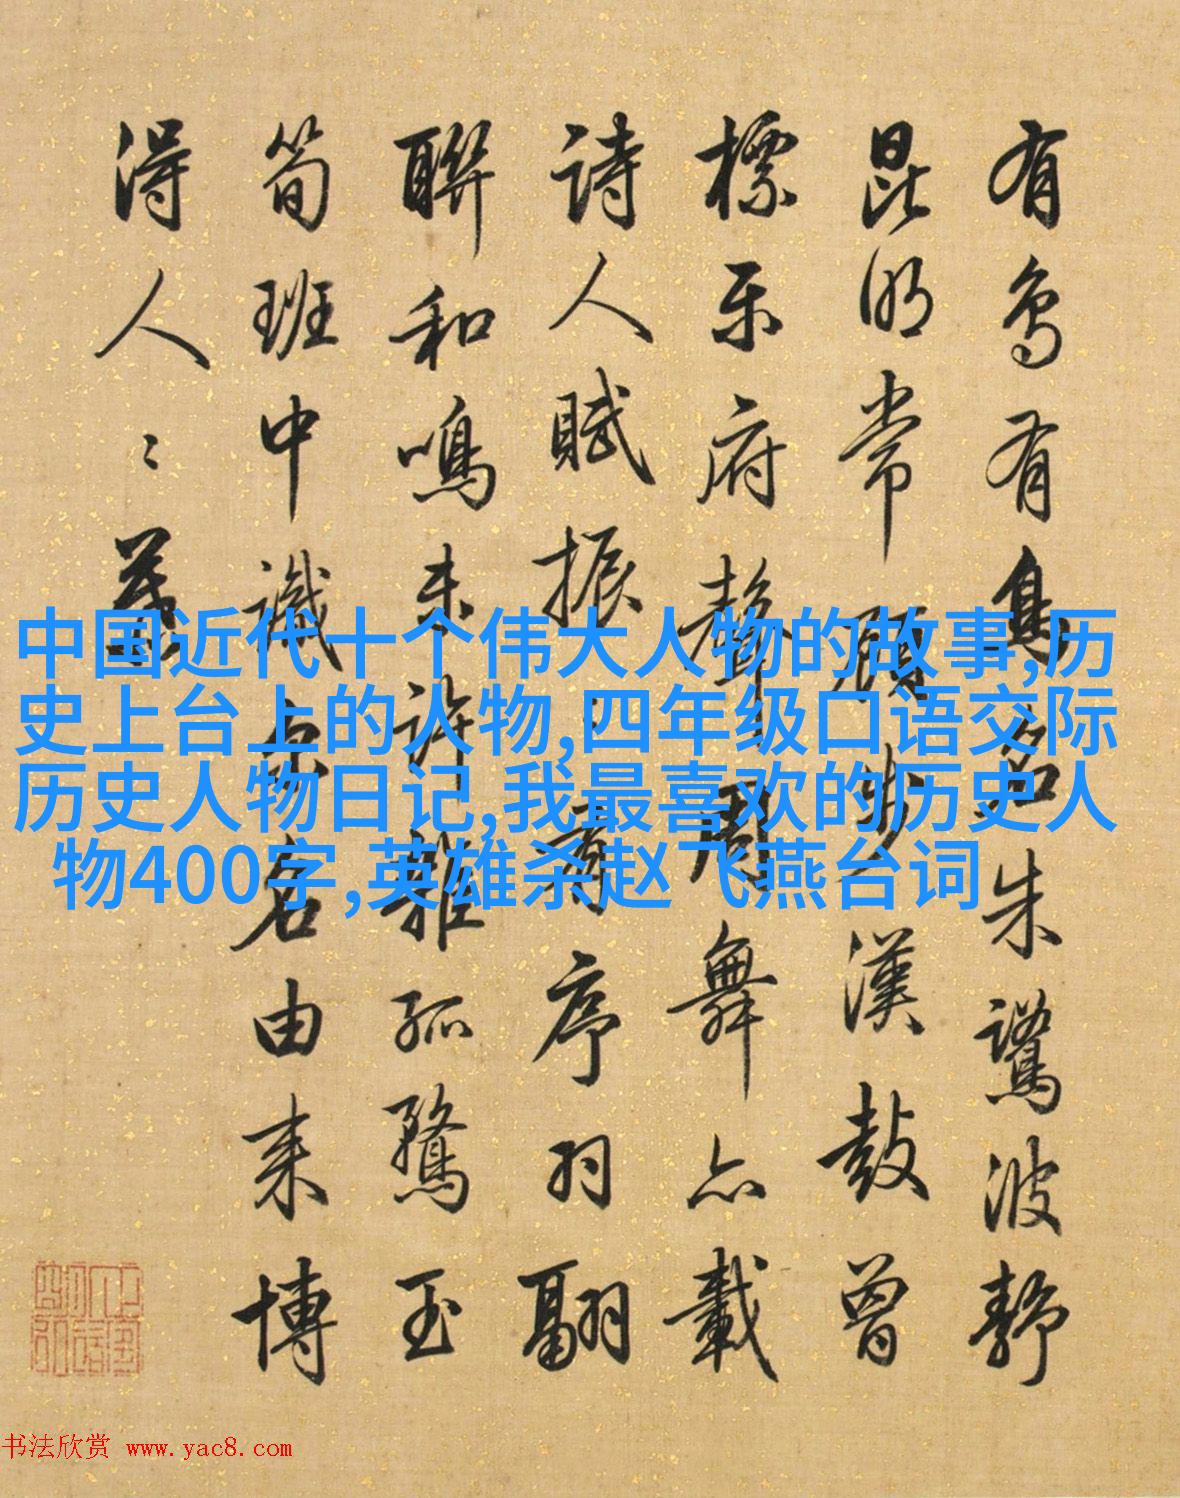 有鳥有名朱鷺波静
昆明常顧步漢鼓曾
標樂府聲周舞亦載
詩人賦振〻有序羽翮
聯和鳴未許雜孤鶩玉
筍班中識名由来博
得人〻義
中国近代十个伟大人物的故事,历
史上台上的人物,四年级口语交际
历史人物日记,我最喜欢的历史人
物400字,英雄杀赵飞燕台词
书法欣赏 www.yac8.com